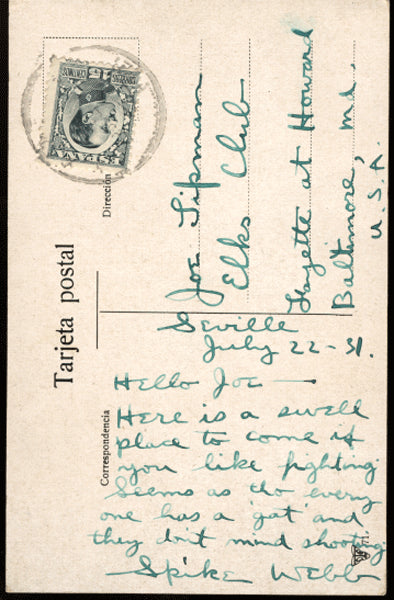 Tarjeta postal
Dirección
Correspondencia
ESPAÑA
15
CENTIMOS
Joe Lipman
Elks Club
Fayette at Howard
Baltimore, Md.
U.S.A.
Seville
July 22-31.
Hello Joe —
Here is a swell
place to come if
you like fighting
Seems as tho every
one has a "gat" and
they don't mind shooting
Spike Webb